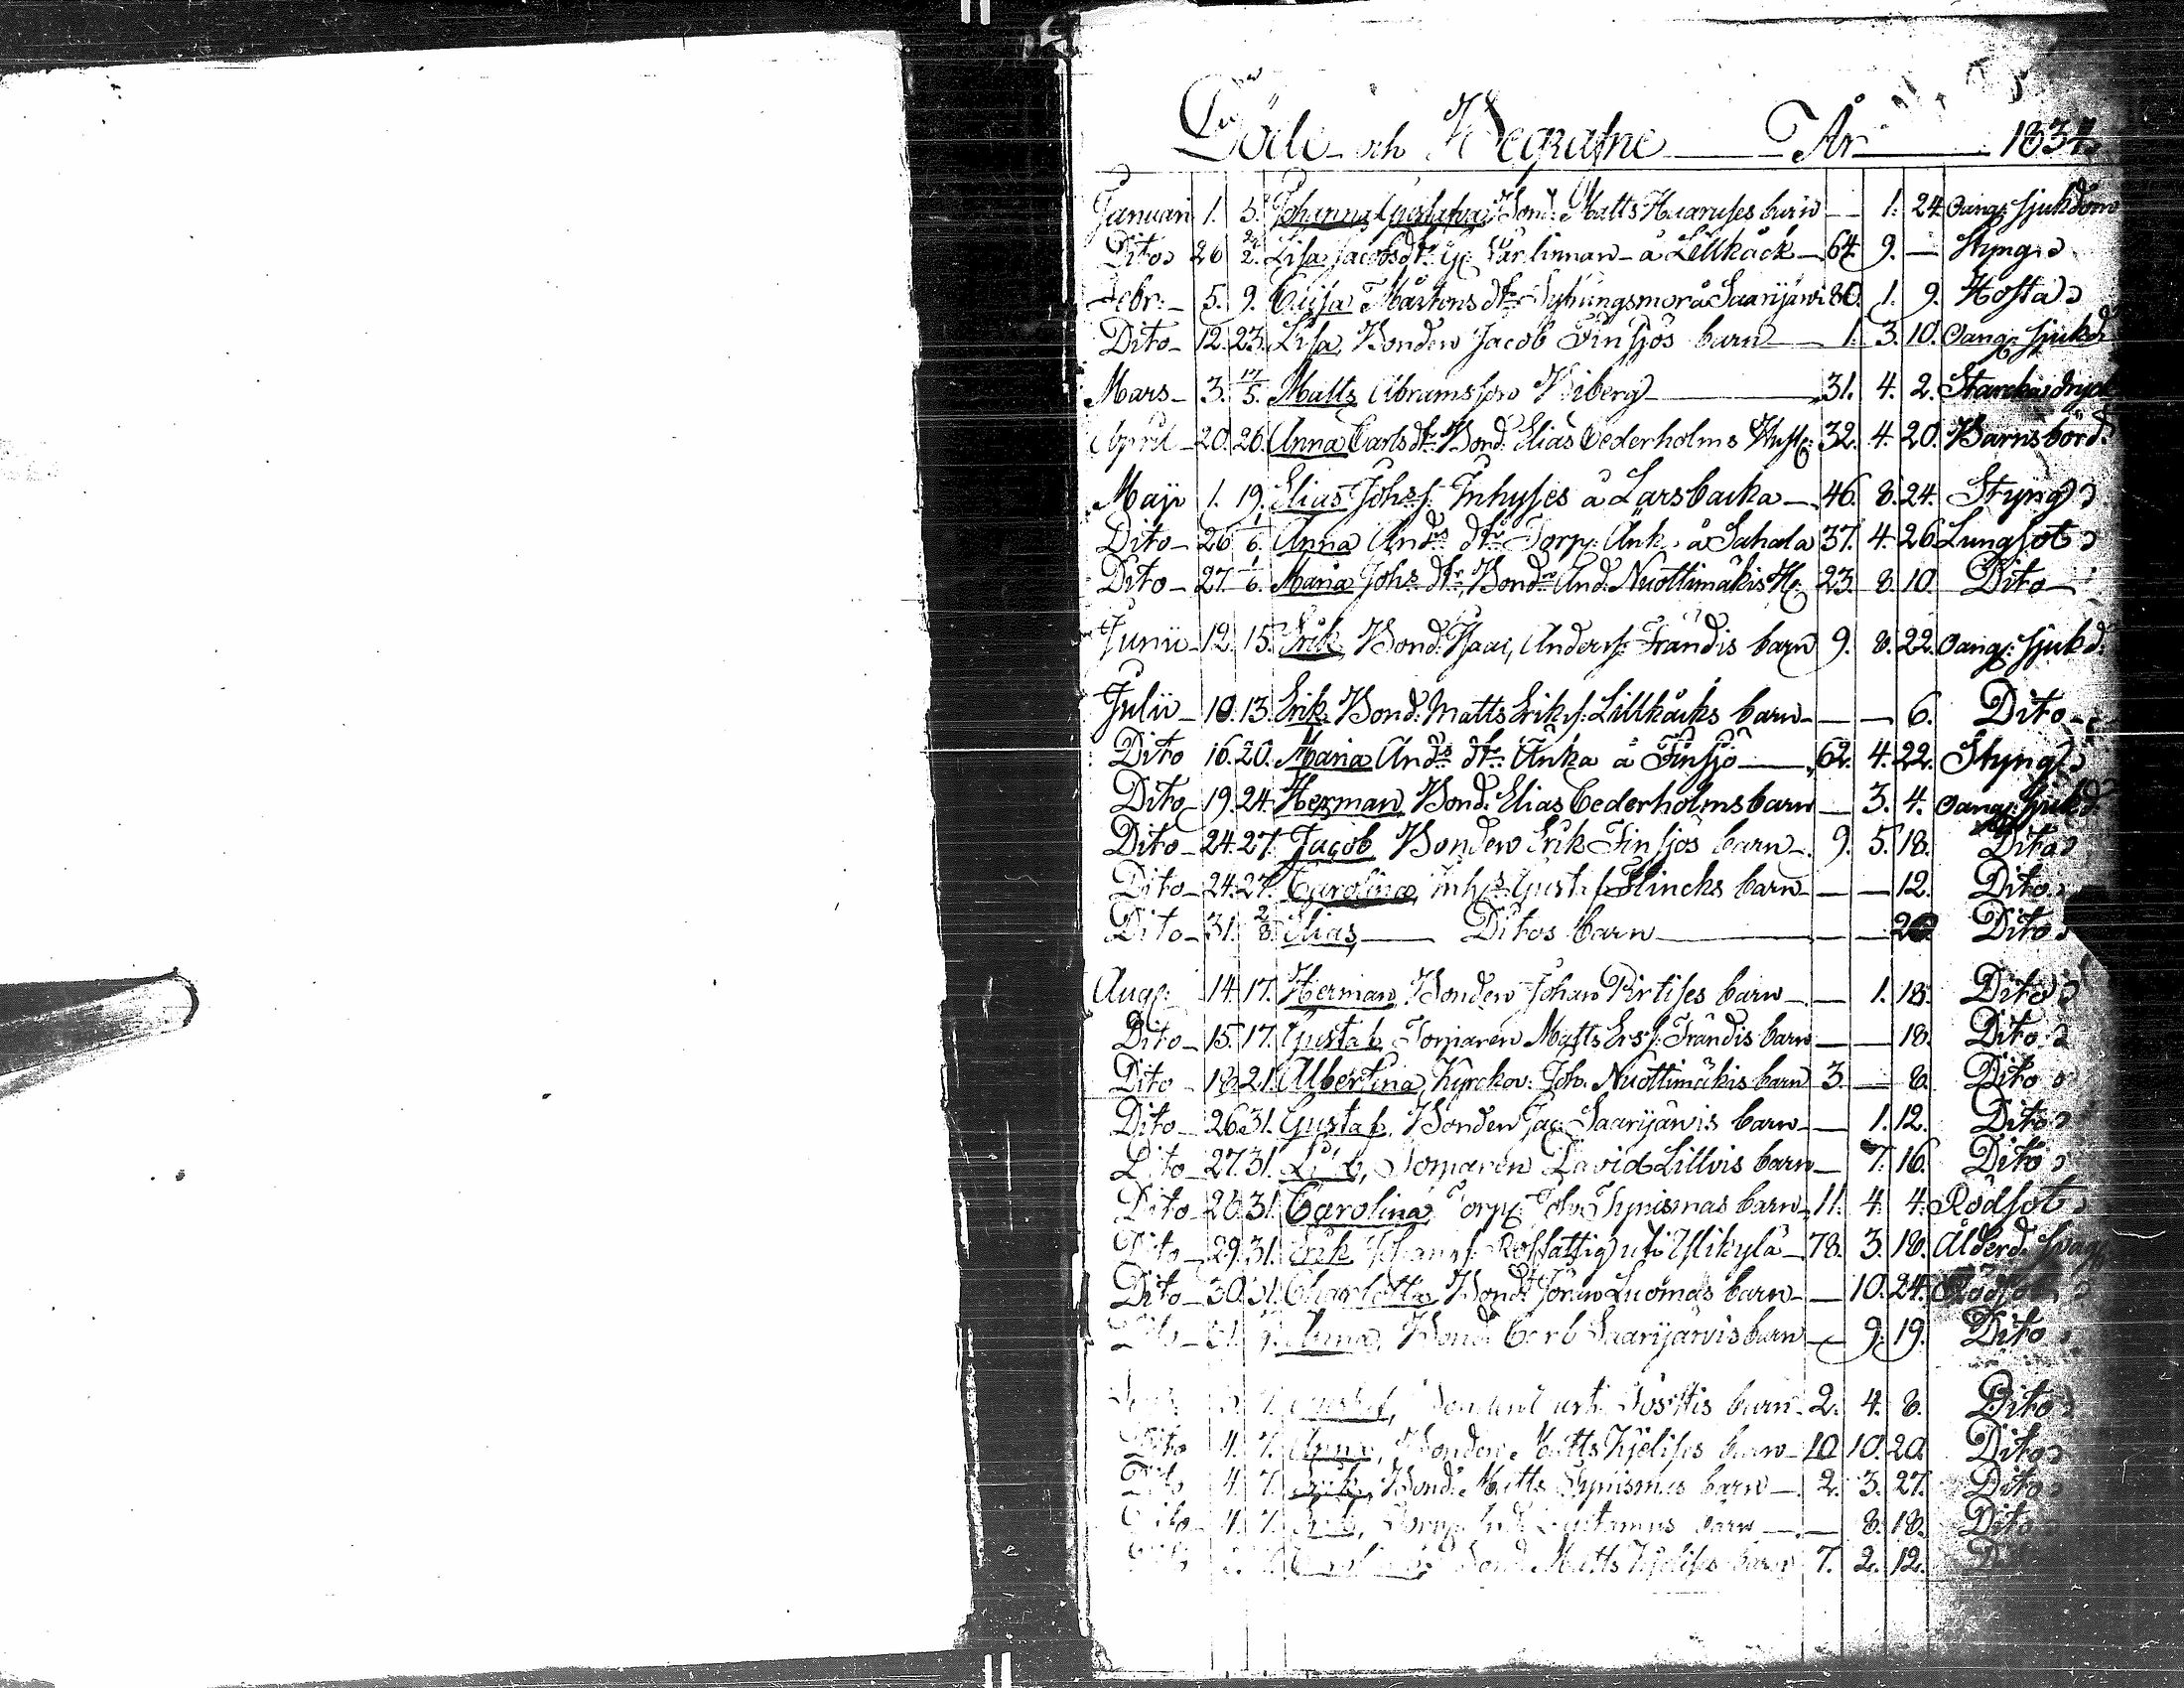 Döde och Begrafne År 1834.
Januari 1. 5. Johanna Gustafva Bond. Matts Haaruses barn — 1. 24. Oang: sjukdom
Dito 26 2/2. Lisa Jacobsdtr Gc: Färlinnan å Lillkåck — 64. 9. — Styng
Febr: 5. 9. Caisa Mårtens dtr Sytningsmor å Saarijärvi 80. 1. 9. Hosta
Dito 12. 23. Lisa, Bonden Jacob Finsjös barn — 1. 3. 10. Oang: sjukd
Mars 3. 17/5. Matts Abramsson Wiberg — 31. 4. 2. Starcka dryck
April 20. 26. Anna Carlsdtr Bond. Elias Cederholms Hust: 32. 4. 20. Barnsbörd.
Maji 1. 19. Elias Johs s. Inhyses å Larsbacka — 46. 8. 24. Styng
Dito 26 1/6. Anna Ands dtr Torp. Änk. å Sahala 37. 4. 26 Lungsot
Dito 27. 1/6. Maria Johs dtr, Bond And. Nuottimäkis H: 23. 8. 10. Dito
Junii 12. 15. Erik, Bond. Isaac Anders s. Frändis barn 9. 8. 22. Oang: sjukd:
Julii 10. 13. Erik. Bond. Matts Eriks s. Lillkåcks barn — — 6. Dito
Dito 16. 20. Maria Ands dtr Änka å Finsjö — 62. 4. 22. Styng
Dito 19. 24. Herman, Bond. Elias Cederholms barn — 3. 4. Oang: sjukd
Dito 24. 27. Jacob Bonden Erik Finsjös barn — 9. 5. 18. Dito
Dito 24. 27. Carolina, Inhs Gust. Flincks barn — — 12. Dito
Dito 31. 2/8. Elias, — Ditos barn — — 20 Dito
Aug: 14. 17. Herman, Bonden Johan Pirtises barn — 1. 18. Dito
Dito 15. 17. Gustaf, Torparen Matts Ers s. Frändis barn — — 18. Dito
Dito 18. 21. Albertina, Kyrkov. Joh. Nuottimäkis barn 3. — 8. Dito
Dito 26. 31. Gustaf, Bonden Jac. Saarijärvis barn — 1. 12. Dito
Dito 27. 31. Torparen David Lillvis barn — 7. 16. Dito
Dito 28. 31. Carolina, Torp: Joh. Tynismas barn 11. 4. 4. Rödsot
Dito 29. 31. Erik Johans s. Rotfattig uti Ylikylä — 78. 3. 18. Ålderd. svagh
Dito 30. 31. Charlotta, Bond. Jöran Luomas barn — 10. 24. Rödsot
Dito 31. 7. Anna, Bond. Carl Saarijärvis barn — 9. 19. Dito
7. Gustaf, Bonden barn 2. 4. 8. Dito
Dito 4. 7. Anna, Bonden Matts Kjelises barn 10 10. 20. Dito
Dito 4. 7. Erik, Bond. Matts Tynismas barn — 2. 3. 27. Dito
Dito 4. 7. Torp. barn — 8. 18. Dito
Bond. Matts Kjelises barn 7. 2. 12. Dito